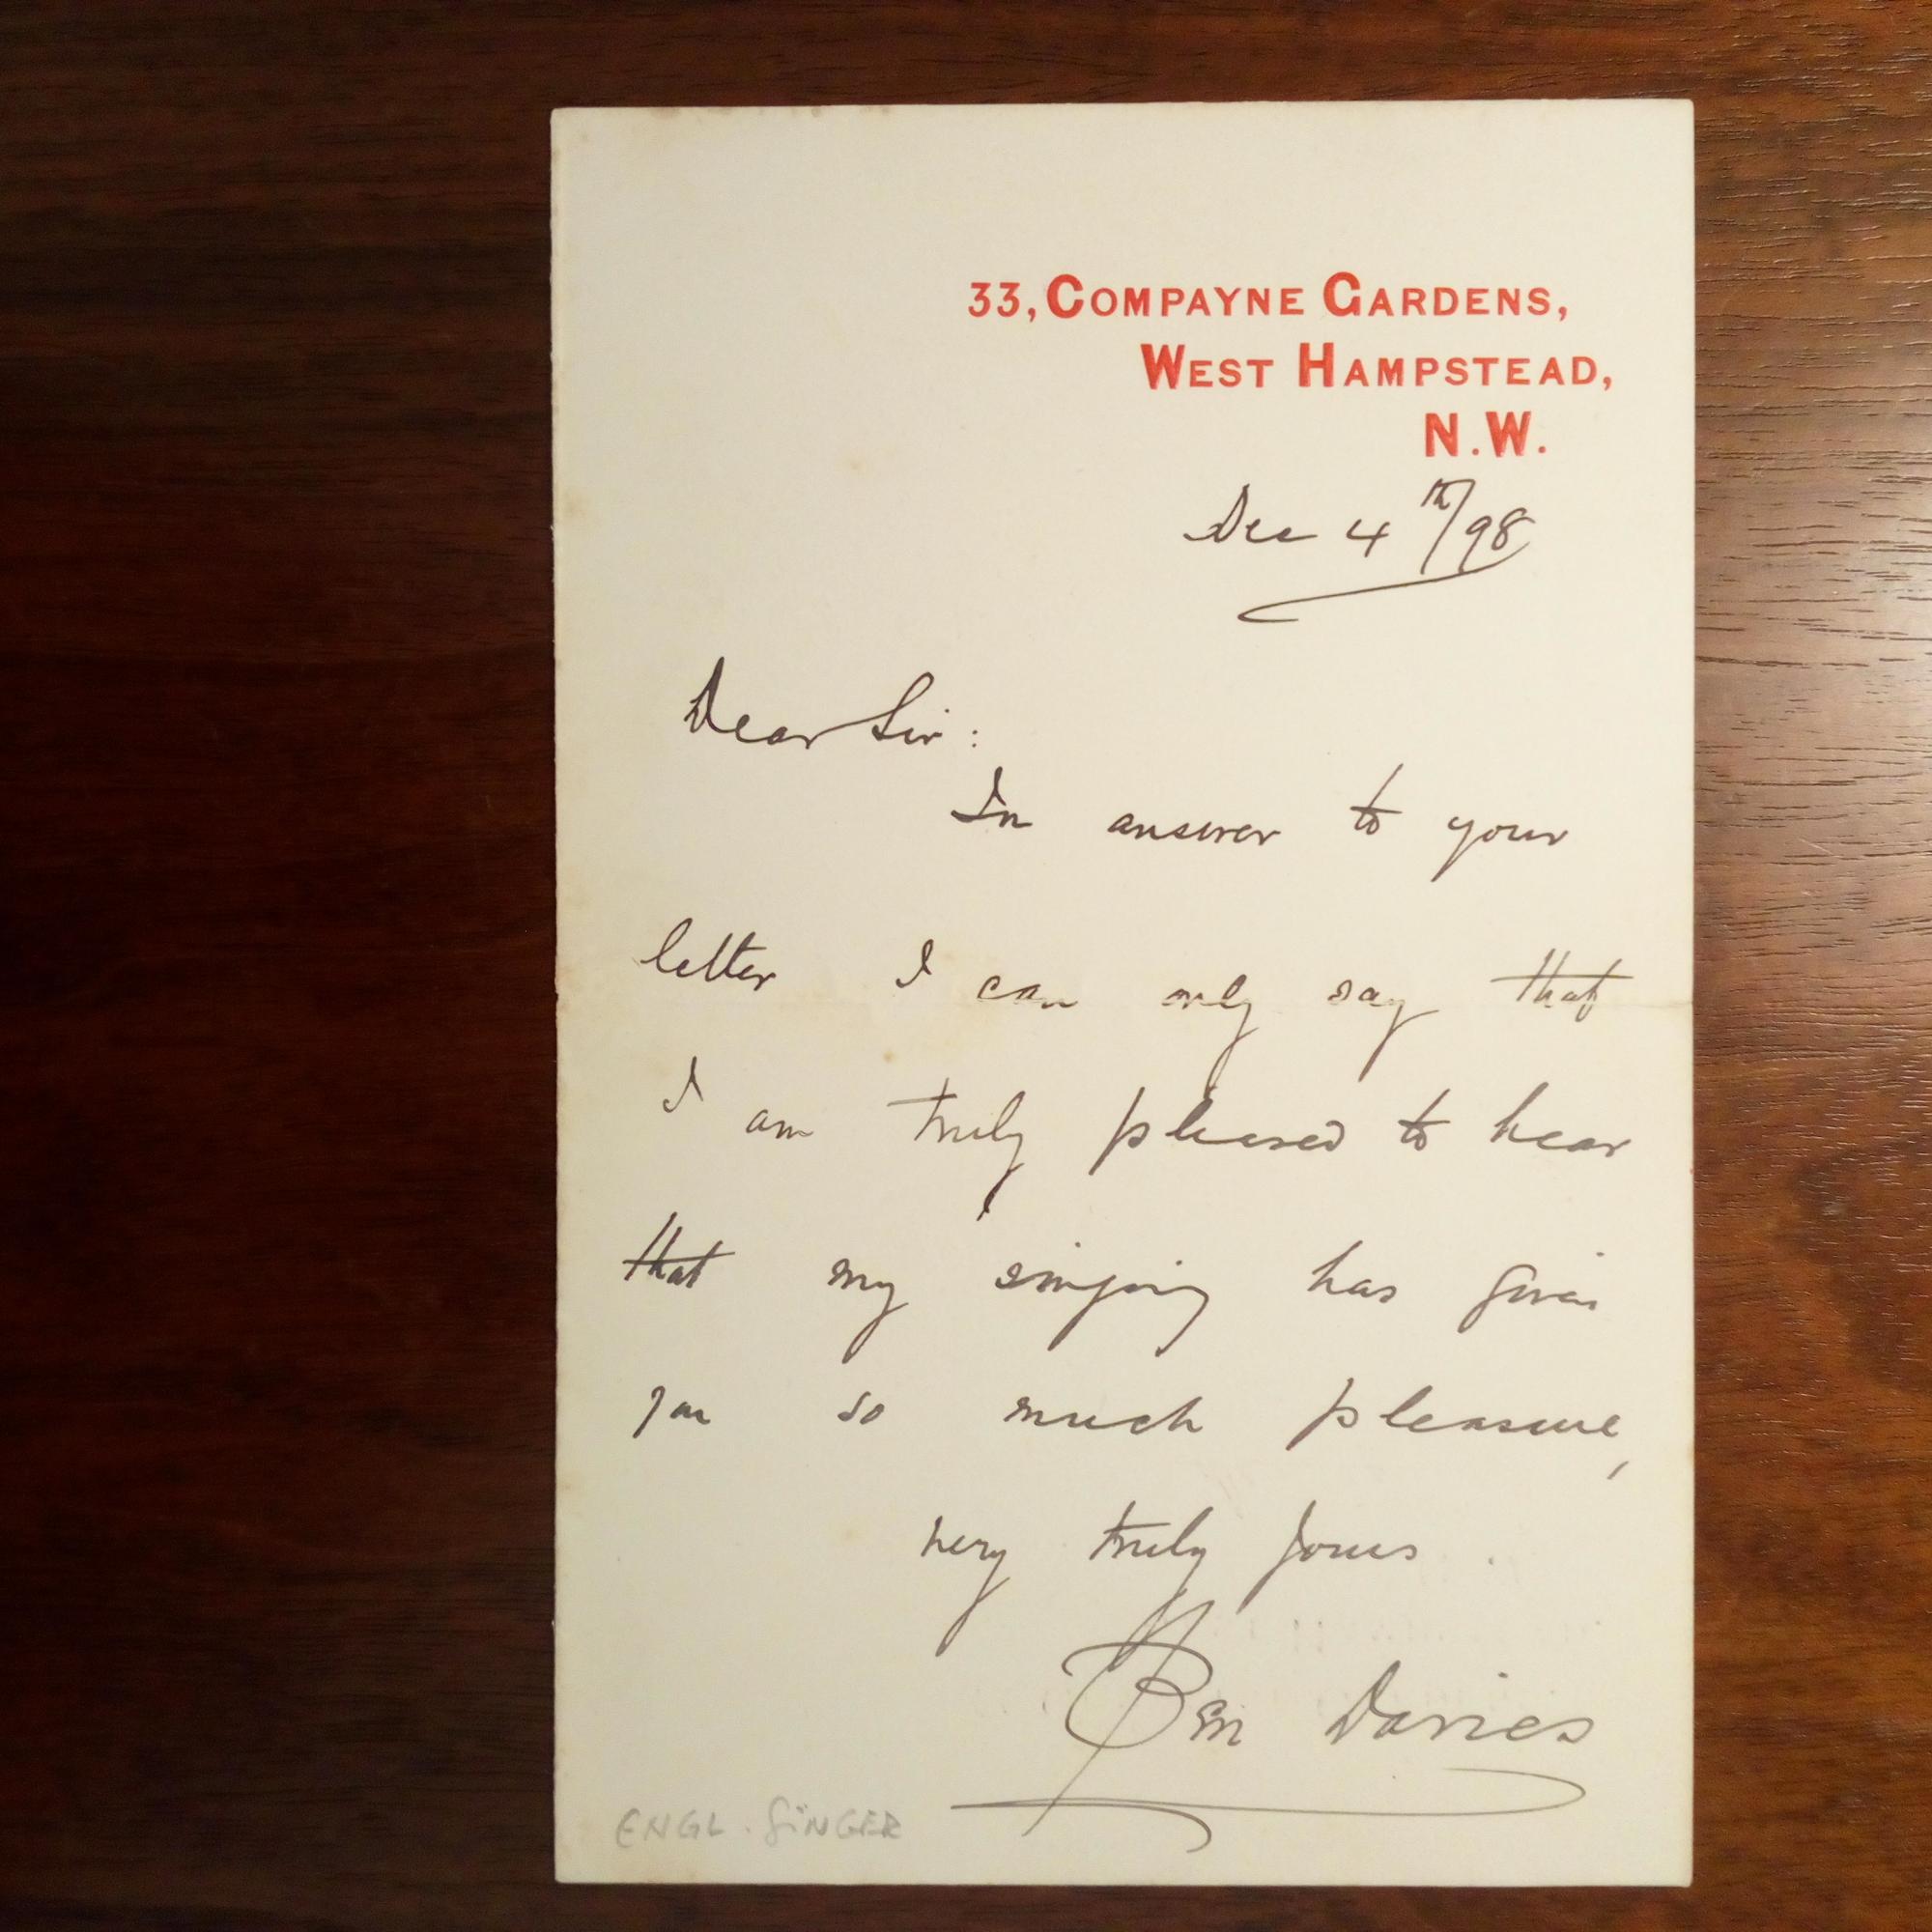 33, COMPAYNE GARDENS,
WEST HAMPSTEAD,
N.W.
Dec 4th/98
Dear Sir:
In answer to your
letter I can only say that
I am truly pleased to hear
that my singing has given
you so much pleasure,
very truly yours.
Ben Davies
ENGL. SINGER